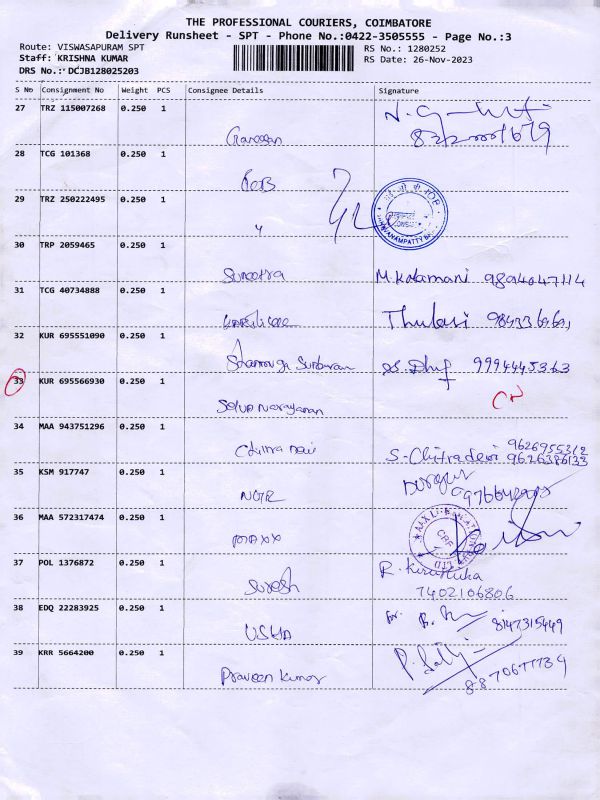 THE PROFESSIONAL COURIERS, COIMBATORE
Delivery Runsheet - SPT - Phone No.:0422-3505555 - Page No.:3
Route: VISWASAPURAM SPT RS No.: 1280252
Staff: KRISHNA KUMAR RS Date: 26-Nov-2023
DRS No.: DCJB128025203
S No Consignment No Weight PCS Consignee Details Signature
27 TRZ 115007268 0.250 1
Ganesan
28 TCG 101368 0.250 1
29 TRZ 250222495 0.250 1
30 TRP 2059465 0.250 1
Sumathra M.Kalamani 9894047114
31 TCG 40734888 0.250 1
Thulasi
32 KUR 695551090 0.250 1
Shanmuga Sundaram 9994445363
33 KUR 695566930 0.250 1
Selva Narayanan
34 MAA 943751296 0.250 1
Chitra Devi S-Chitradevi 9626955312
9626386133
35 KSM 917747 0.250 1
36 MAA 572317474 0.250 1
MAXX
37 POL 1376872 0.250 1
Suresh R. Kiruthika
7402106806
38 EDQ 22283925 0.250 1
USHA 8147315449
39 KRR 5664200 0.250 1
Praveen Kumar